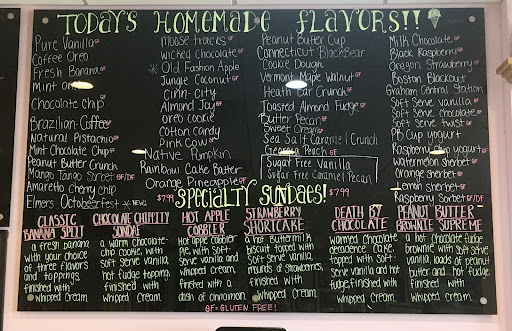 TODAY'S HOMEMADE FLAVORS!!
Pure Vanilla GF
Coffee Oreo
Fresh Banana GF
Mint oreo
Chocolate chip
Brazilian Coffee
Natural Pistachio GF
Mint Chocolate Chip GF
Peanut Butter Crunch
Mango Tango Sorbet GF/DF
Amaretto Cherry chip
Elmers Octoberfest *NEW!
Moose tracks GF
Wicked Chocolate GF
* Old Fashion Apple
Jungle Coconut GF
Cinn-City
Almond Joy GF
Oreo Cookie
Cotton Candy
Pink Cow GF
Native Pumpkin
Rainbow Cake Batter
Orange Pineapple GF
Peanut Butter Cup
Connecticut BlackBear
Cookie Dough
Vermont Maple Walnut GF
Heath Bar Crunch GF
Toasted Almond Fudge GF
Butter Pecan GF
Sweet Cream GF
Sea Salt Caramel Crunch
Georgia Peach GF
Sugar Free Vanilla
Sugar Free Caramel Pecan
Milk Chocolate GF
Black Raspberry GF
Oregon Strawberry GF
Boston Blackout
Graham Central Station
Soft Serve Vanilla GF
Soft Serve Chocolate GF
Soft Serve twist GF
PB Cup yogurt
Raspberry yogurt GF
Watermelon Sherbet GF
Orange sherbet GF
Lemon Sherbet GF
Raspberry Sorbet GF/DF
$7.99 SPECIALTY SUNDAES! $7.99
CLASSIC
BANANA SPLIT
a fresh banana
with your choice
of three flavors
and toppings
finished with
whipped cream.
CHOCOLATE CHIPPITY
SUNDAE
a warm chocolate
chip cookie, with
soft serve vanilla,
hot fudge topping,
finished with
whipped cream.
HOT APPLE
COBBLER
Hot apple cobbler
pie, with soft
serve vanilla, and
whipped cream.
finished with a
dash of cinnamon.
STRAWBERRY
SHORTCAKE
a hot buttermilk
biscuit topped with
soft serve vanilla,
mounds of strawberries,
finished with
whipped cream
DEATH BY
CHOCOLATE
Warmed chocolate
decadence cake,
topped with soft
serve vanilla and hot
fudge, finished with
whipped cream.
PEANUT BUTTER
BROWNIE SUPREME
a hot chocolate fudge
brownie with soft serve
vanilla, loads of peanut
butter and hot fudge,
finished with
whipped cream.
GF=GLUTEN FREE!